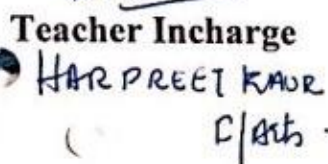 Teacher Incharge
HARPREET KAUR
C/Arts.